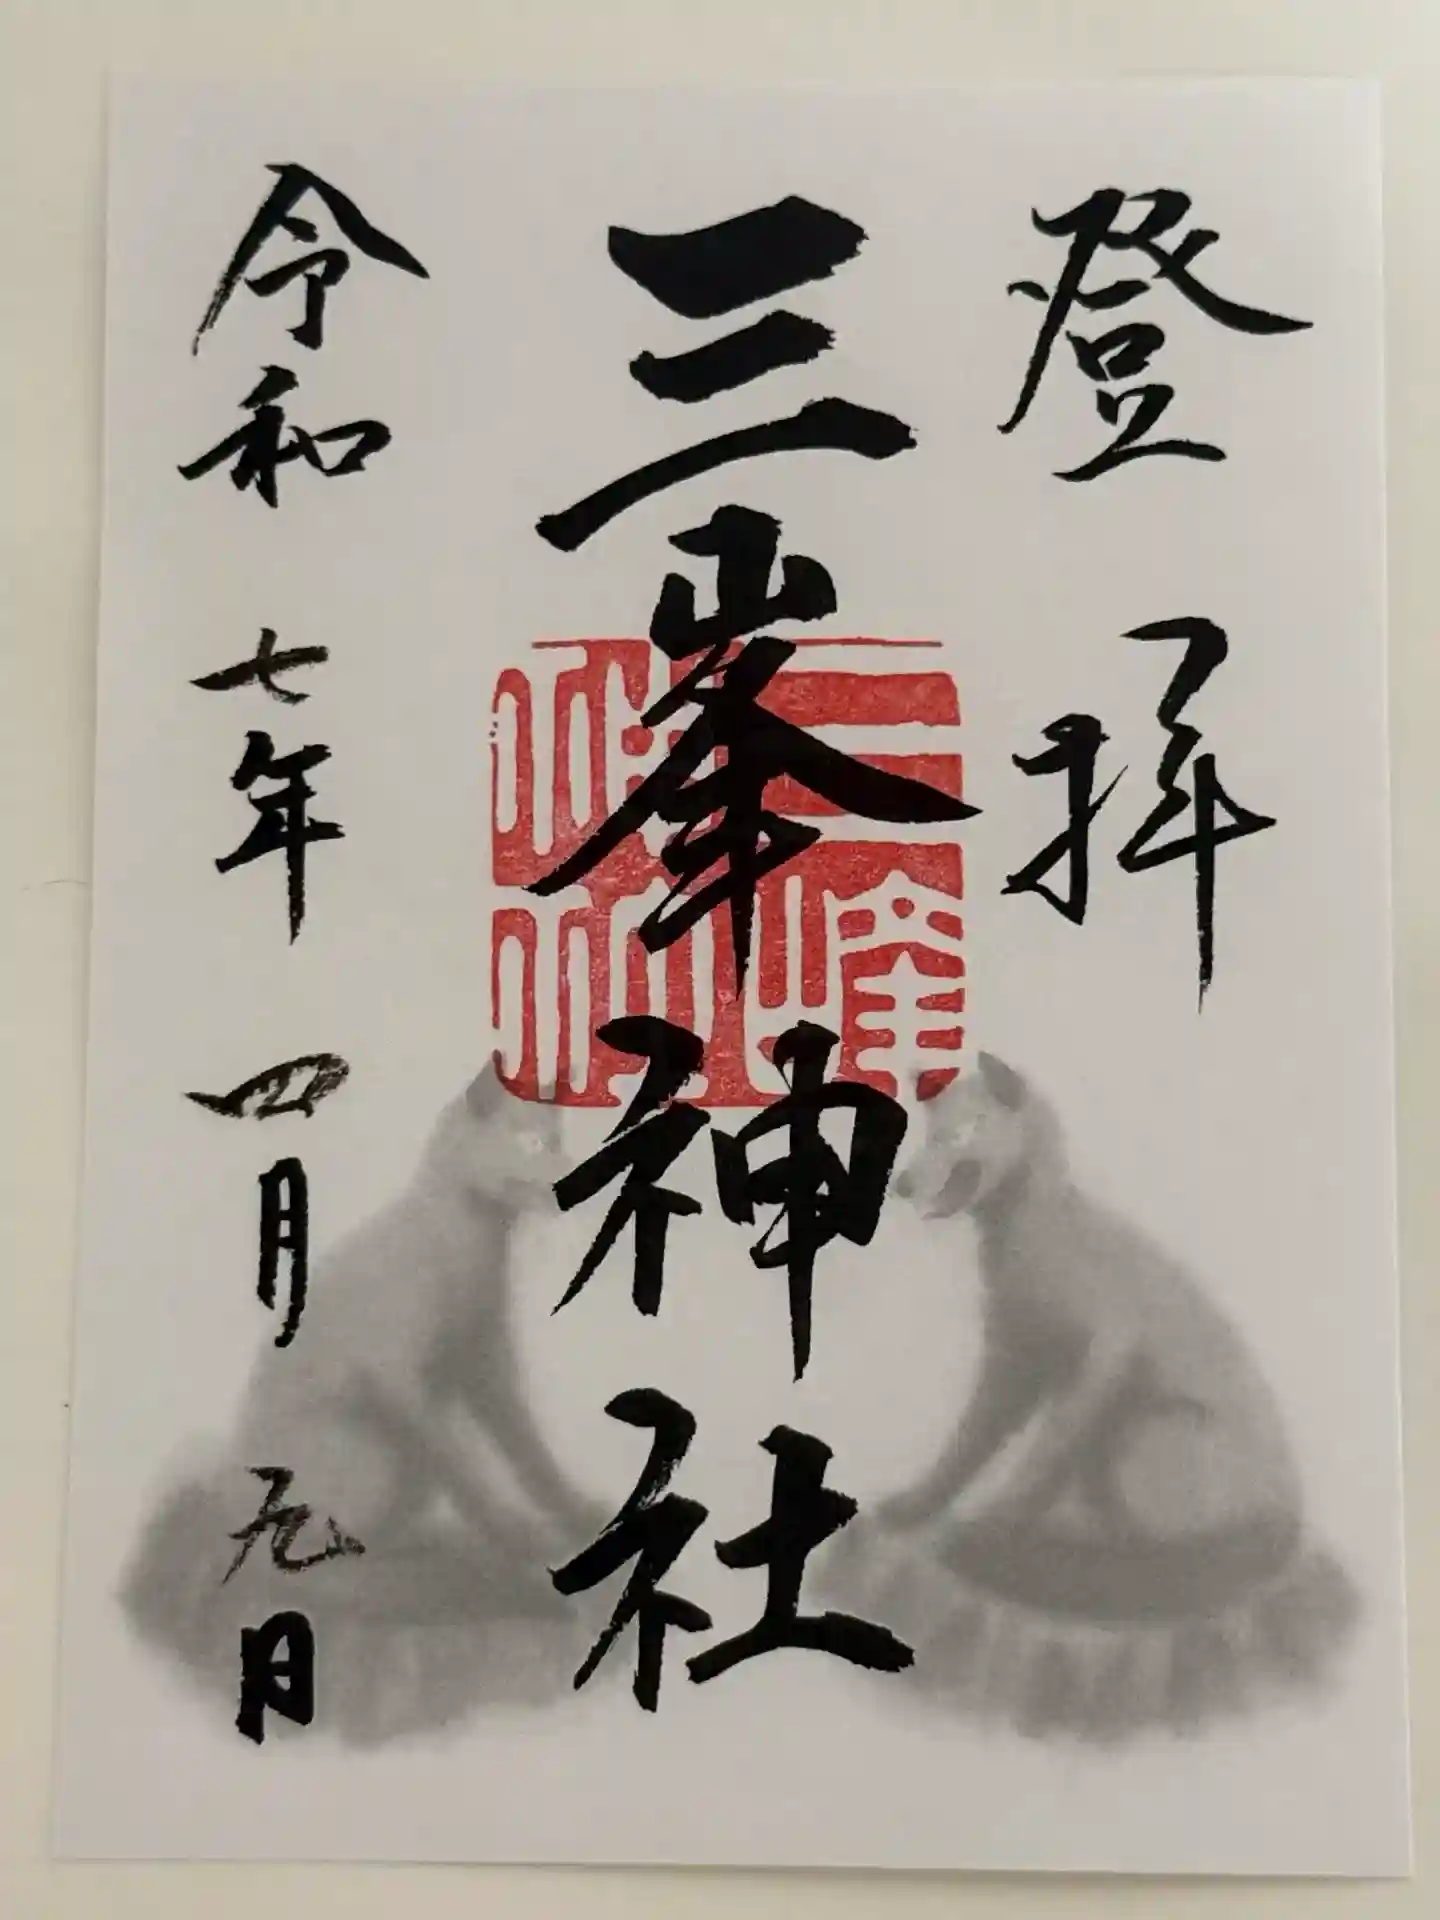 登拝
三峯神社
三峰神社
令和七年四月九日